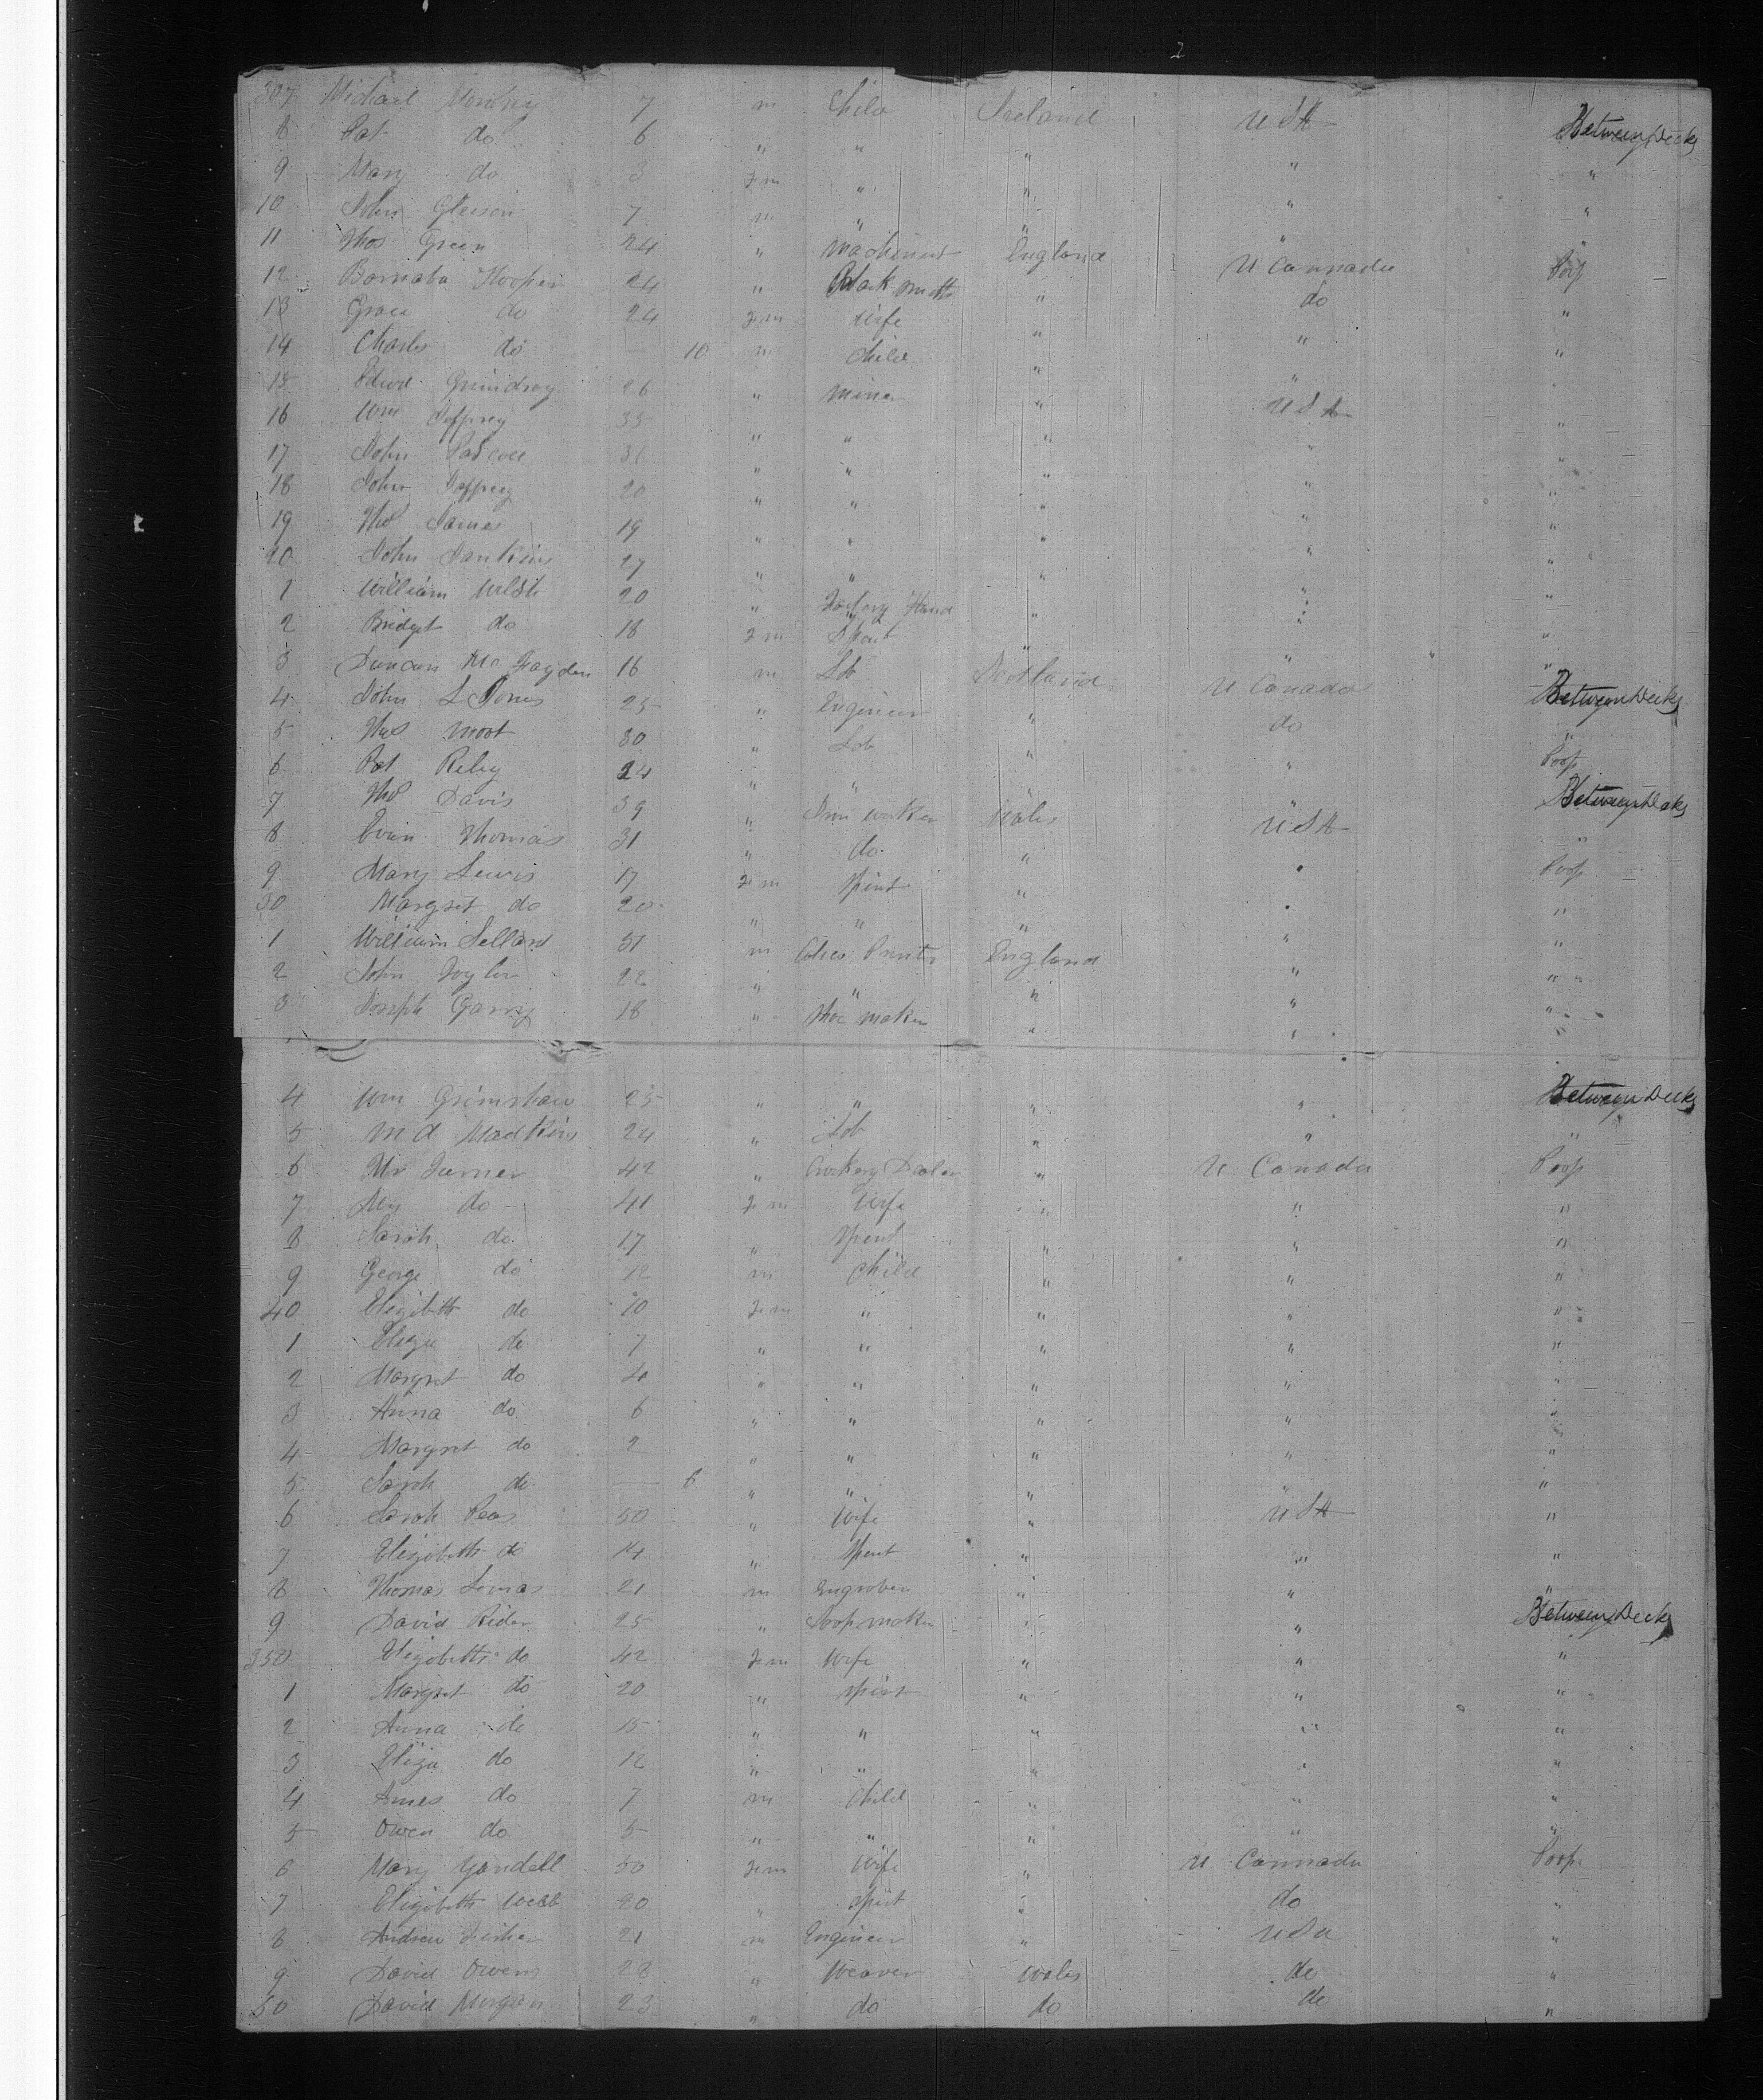 2
307 Michael 7 m Child Ireland USA Between Decks
8 Pat do 6 " " " " "
9 Mary do 3 fem " " " "
10 John Gleison 7 m " " "
11 Thos Green 24 " Machinist England U Cannada Poop
12 Barnaba Hooper 24 " Black Smith " do "
13 Grace do 24 fem Wife " " "
14 Charles do — 10 m Child " "
15 Edwd 26 " Miner " USA "
16 Wm Jeffrey 35 " " " " "
17 John Pascoe 31 " " " " "
18 John Jeffrey 20 " " " " "
19 Thos James 19 " " " " "
20 John Jankins 27 " " " " "
1 William Welsh 20 " Factory Hand " " "
2 Bridget do 18 fem Spint " " "
3 Duncan Mc Fayden 16 m Lab Scotland U Canada Between Decks
4 John L Jones 25 " Engineer " do "
5 Thos Moot 30 " Lab " " Poop
6 Pat Reley 24 " " " Between Decks
7 Thos Davis 39 " Iron worker Wales USA "
8 Evan Thomas 31 " do " " Poop
9 Mary Lewis 17 fem Spint " " "
30 Margret do 20 " " " " "
1 William 51 m Calico Printer England " "
2 John 22 " " " " "
3 Joseph 18 " Shoe maker " " "
4 Wm Grimshaw 25 " " " " Between Decks
5 24 " Lab " " "
6 Mr Turner 42 " Crockery Dealer " U Canada Poop
7 do 41 fem Wife " " "
8 Sarah do 17 " Spent " " "
9 George do 12 m Child " " "
40 Elizibeth do 10 fem " " " "
1 Eliza do 7 " " " " "
2 Margret do 4 " " " " "
3 Anna do 6 " " " " "
4 Margret do 2 " " " " "
5 Sarah do — 6 " " " " "
6 Sarah 50 " Wife " USA "
7 Elizibeth do 14 " Spent " " "
8 Thomas Lomas 21 m Engraver " " "
9 David Rider 25 " Soap maker " " Between Decks
350 Elizibeth do 42 fem Wife " " "
1 Margret do 20 " Spint " " "
2 Anna do 15 " " " " "
3 Eliza do 12 " " " " "
4 do 7 m Child " " "
5 Owen do 5 " " " " "
6 Mary Yandell 50 fem Wife " U Cannada Poop
7 Elizibeth Webb 20 " Spint " do "
8 Andrew Fisher 21 m Engineer " USA "
9 David Owens 23 " Weaver Wales do "
50 David Morgan 23 " do do do "